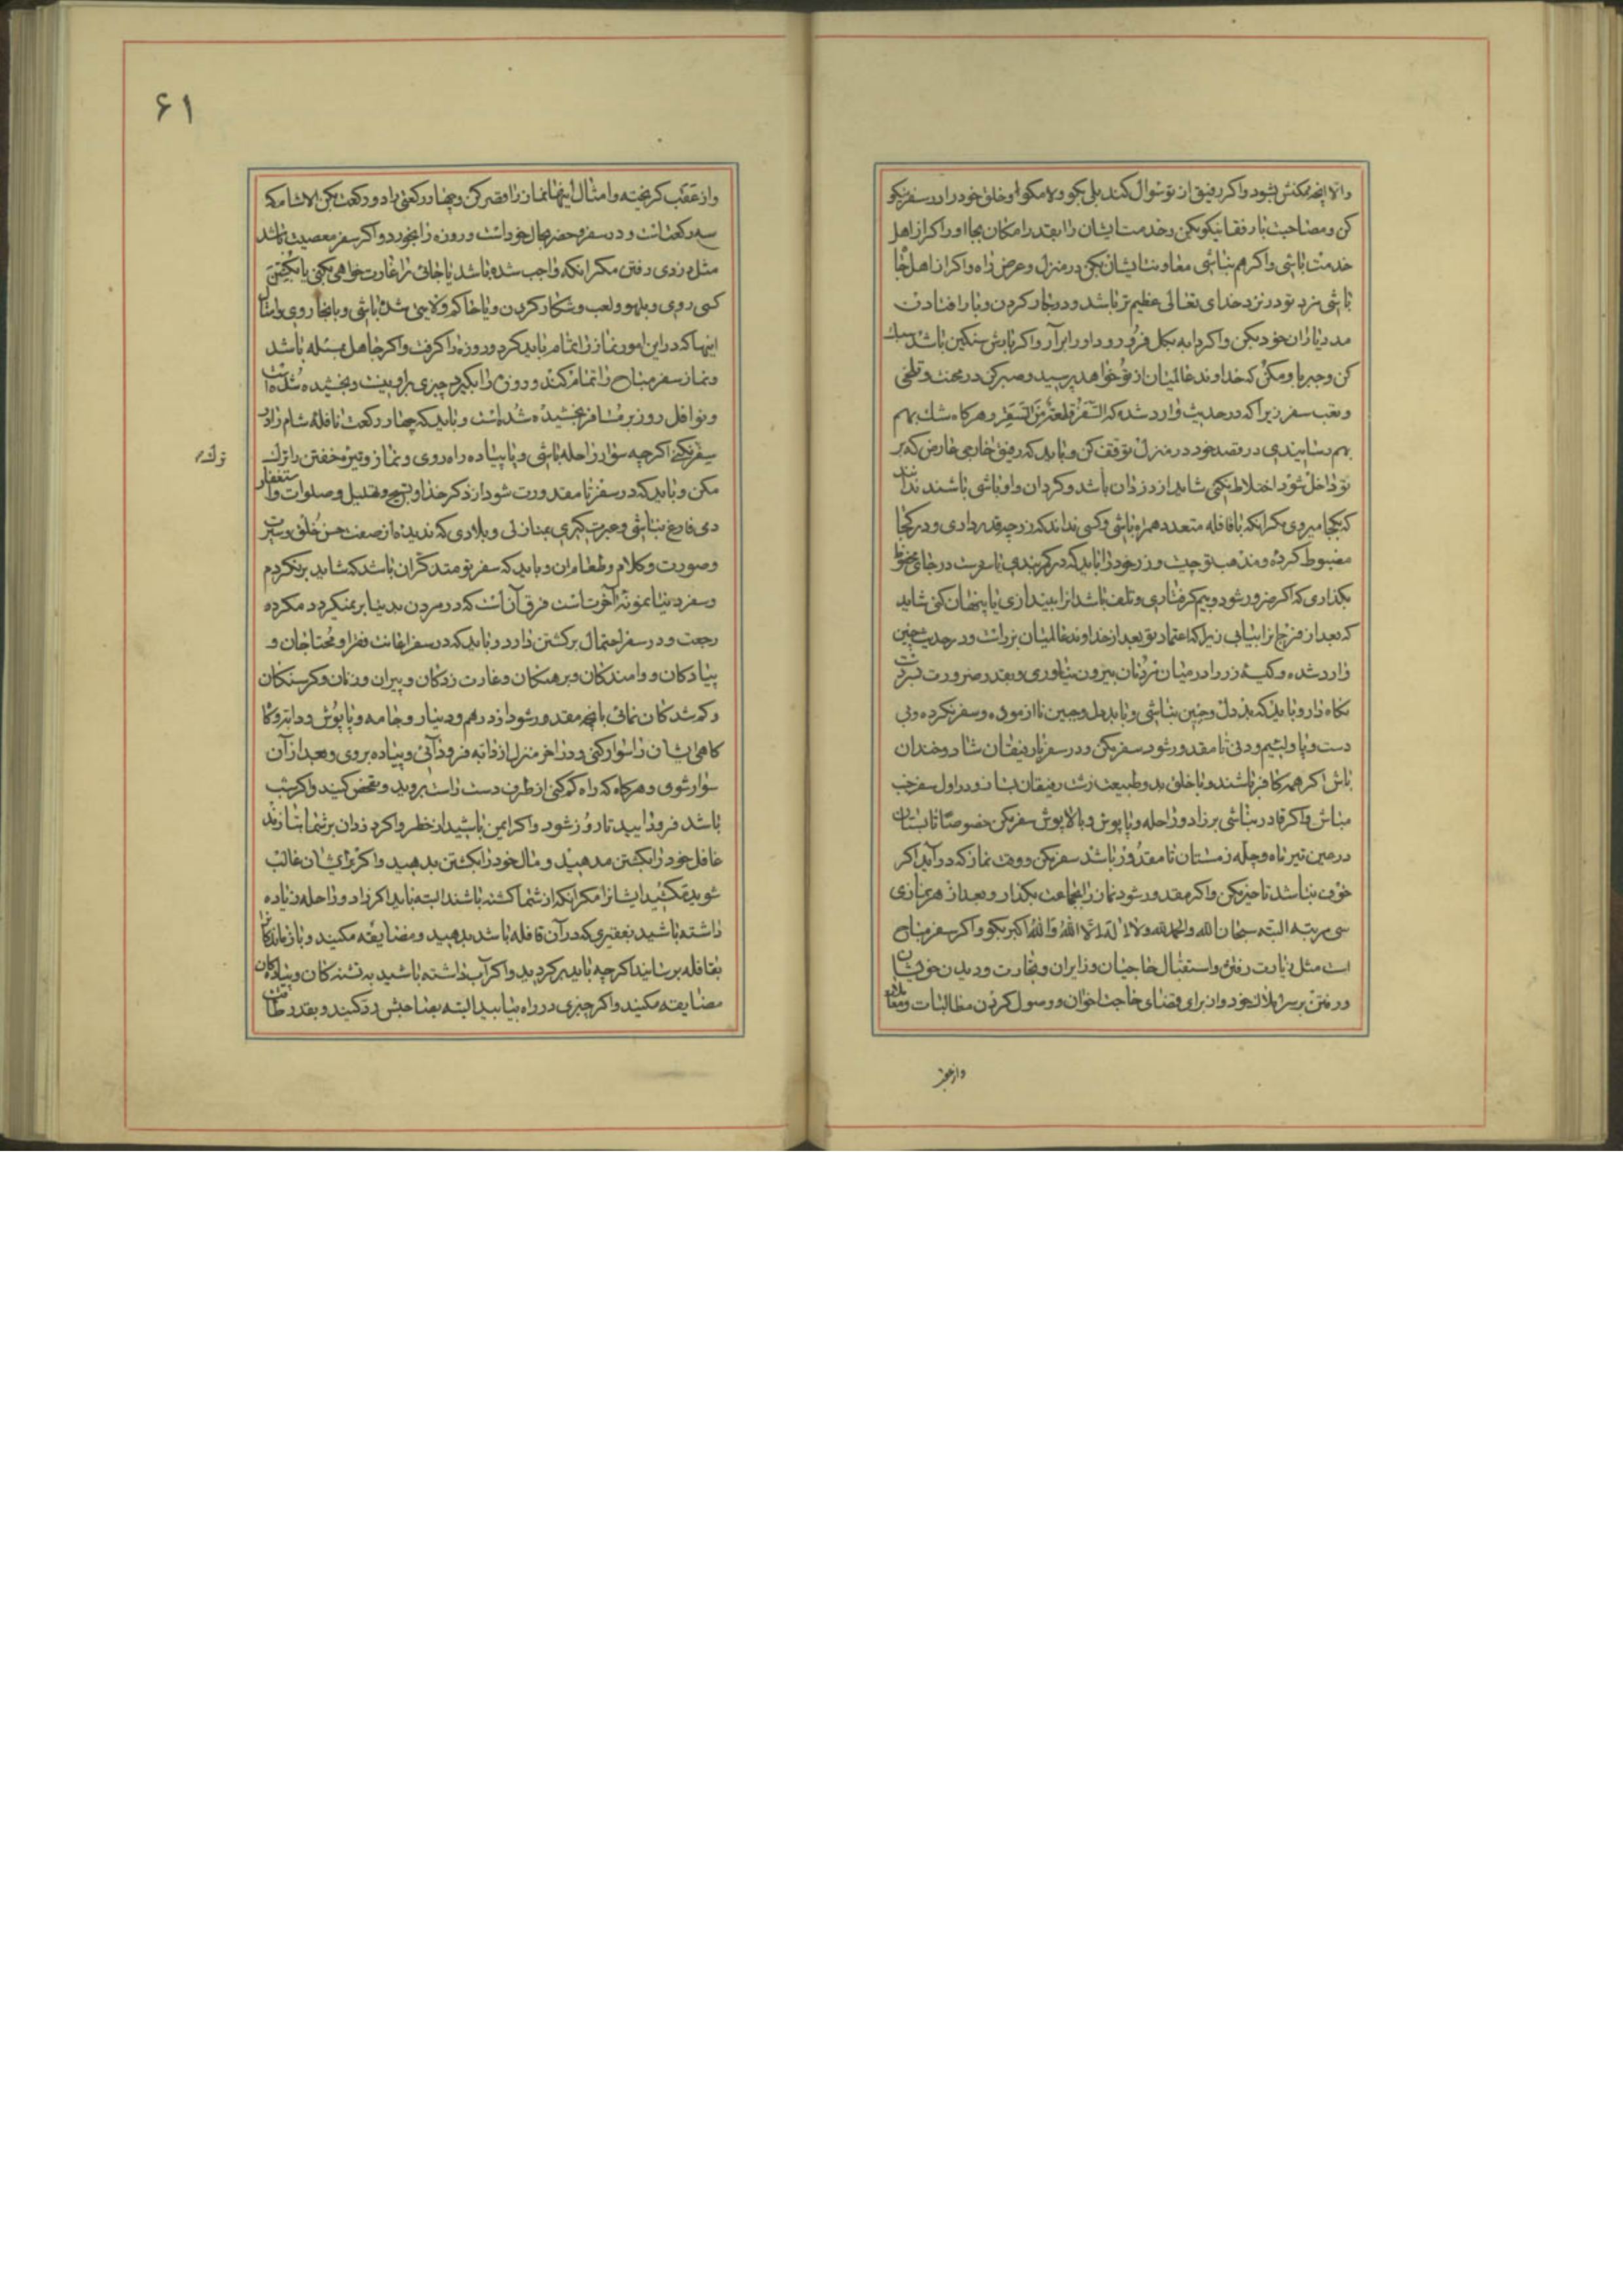 والا آنچه ممکنش شود و اگر رفیق از تو سوال کند بلی بگو و لا مگو و خلق خود را در سفر نیکو
کن و مصاحبت با رفقا نیکو بکن و خدمت ایشان را بقدر امکان بجا آور اگر از اهل
خدمت باشی و اگر هم نباشی معاونت ایشان بکن در منزل و عرض راه و اگر از اهل
باشی مزد تو در نزد خدای تعالی عظیم تر باشد و در بار کردن و بار افتادن
مدد یاران خود بکن و اگر دابه بگل فرو رود او را برآر و اگر بارش سنگین باشد سبک
کن و جبر با او مکن که خداوند عالمیان از تو خواهد پرسید و صبر کن در محنت و تلخی
و تعب سفر زیرا که در حدیث وارد شده که السفر قطعة من السقر و هرگاه شک بهم
بهم رسانیدی در قصد خود در منزل توقف کن و باید که رفیق خارجی خارض که بر
تو داخل شود اختلاط نکنی شاید از دزدان باشد و کردان و اوباشی باشند ندانند
که بکجا میروی مگر آنکه با قافله متعدد همراه باشی و کسی نداند که زر چه قدر داری و در کجا
مضبوط کرده و مذهب تو چیست و زر خود را باید که در کمر بندی تا سفرست در جای محفوظ
بگذاری که اگر ضرور شود و بیم گرفتاری و تلف باشد آنرا بیندازی یا پنهان کنی شاید
که بعد از فرج آنرا بیابی زیرا که اعتماد تو بعد از خداوند عالمیان بزر است و در حدیث چنین
وارد شده و کیسه زر را در میان مردمان بیرون نیاوری و بقدر ضرورت نزد دست
نگاه دار و باید که بددل و جبین نباشی و با بددل و جبین ناآزموده و سفر نکرده و بی
دست و پا و لئیم و دنی تا مقدور شود سفر مکن و در سفر با رفیقان شاد و خندان
باش اگر همه کافر باشند و با خلق بد و طبیعت زشت رفیقان بساز و در اول سفر جنب
مباش و اگر قادر نباشی بر زاد و راحله و پاپوش و بالاپوش سفر مکن خصوصا تابستان
در عین تیر ماه و چله زمستان تا مقدور باشد سفر مکن و وقت نماز که درآید اگر
خوف نباشد تاخیر مکن و اگر مقدور شود نماز را بجماعت بگذار و بعد از هر نمازی
سی مرتبه البته سبحان الله والحمد لله ولا اله الا الله والله اکبر بگو و اگر سفر مباح
است مثل زیارت رفتن و استقبال حاجیان و زایران و تجارت و دیدن خویشان
و رفتن بر سر املاک خود و از برای قضای حاجت اخوان و وصول کردن مطالبات و معاملات
واز عقب
۶۱
و از عقب گریخته و امثال اینها نماز را قصر کن و چهار رکعتی را دو رکعت بکن الا شام که
سه رکعت است و در سفر و حضر بحال خود است و روزه را بخورد و اگر سفر معصیت باشد
مثل دزدی رفتن مگر آنکه واجب شده باشد یا جائی را غارت خواهی بکنی یا بکشتن
کسی روی و بلهو و لعب و شکار کردن و یا حاکم ولایتی شده باشی و بآنجا روی و امثال
اینها که در این امور نماز را تمام باید کرد و روزه را گرفت و اگر جاهل مسئله باشد
و نماز سفر مباح را تمام کند و روزه را بگیرد چیزی بر او نیست و بخشیده شده است
و نوافل روز بر مسافر بخشیده شده است و باید که چهار رکعت نافله شام را در
سفر نکنی اگر چه سوار راحله باشی و یا پیاده راه روی و نماز وتیره خفتن را ترک
ترک
مکن و باید که در سفر تا مقدورت شود از ذکر خدا و تسبیح و تهلیل و صلوات و استغفار
دمی فارغ نباشی و عبرت گیری بمنازلی و بلادی که ندیده از صفت حسن خلق و سیرت
و صورت و کلام و طعام و باید که سفر تو متذکر آن باشد که شاید برنگردم
و سفر دنیا نمونه آخوت است فرق آن است که در مردن بدنیا بر نمیگردد مگر ده
رجعت و در سفر احتمال برگشتن دارد و باید که در سفر اعانت فقرا و محتاجان و
پیادگان و واماندگان و برهنگان و غارت زدگان و پیران و زنان و گرسنگان
و گم شدگان نمائی بآنچه مقدور شود از درهم و دینار و جامه و پاپوش و دابه و گاه
گاهی ایشان را سوار کنی و در آخر منزل از دابه فرود آئی و پیاده بروی و بعد از آن
سوار شوی و هرگاه که راه گم کنی از طرف دست راست بروید و تفحص کنید و اگر شب
باشد فرود آیید تا روز شود و اگر ایمن باشید از خطر و اگر دزدان بر شما بتازند
غافل خود را بکشتن مدهید و مال خود را بکشتن بدهید و اگر بر ایشان غالب
شوید مکشید ایشان را مگر آنکه از شما کشته باشند البته باید اگر زاد و راحله زیاده
داشته باشید بفقیری که در آن قافله باشد بدهید و مضایقه مکنید و بازماندگان را
بقافله برسانید اگر چه باید برگردید و اگر آب داشته باشید به تشنه گان و پیادگان
مضایقه مکنید و اگر چیزی در راه بیابید البته بصاحبش رد کنید و بقدر طاقت